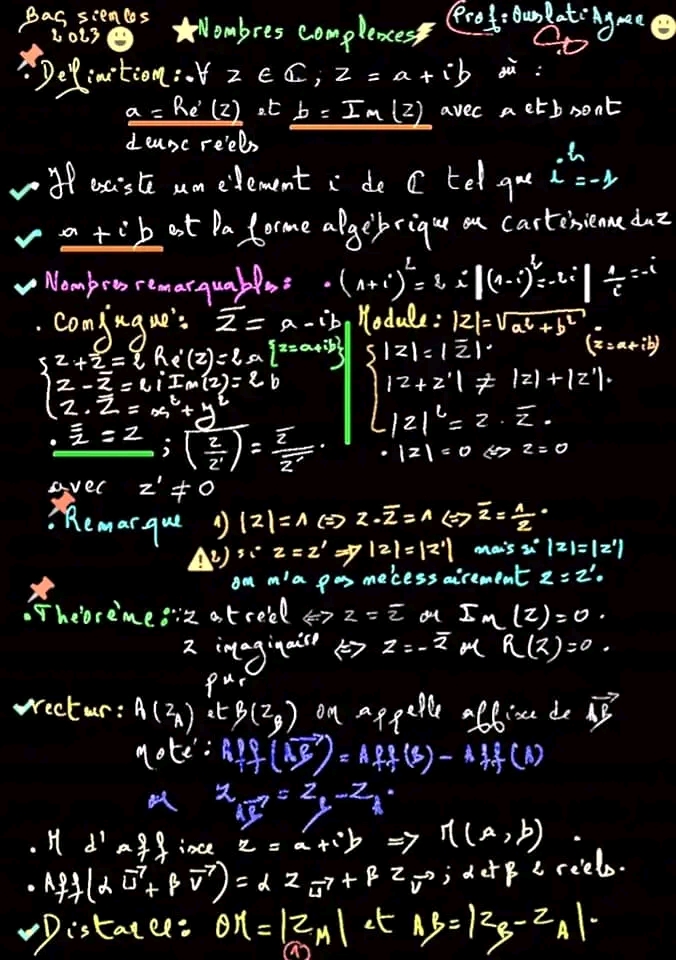 Bac siences
2023
Nombres complexes
Prof: Oueslati Aymen
• Définition: ∀ z ∈ ℂ, z = a + ib où :
a = Ré(z) et b = Im(z) avec a et b sont
deux réels
Il existe un élément i de ℂ tel que i² = -1
a + ib est la forme algébrique ou cartésienne du z
Nombres remarquables: • (1+i)² = 2i | (1-i)² = -2i | 1/i = -i
• Conjugué: z̅ = a - ib
z + z̅ = 2 Ré(z) = 2a {z=a+ib}
z - z̅ = 2i Im(z) = 2b
z . z̅ = x² + y²
• z̿ = z ; (z/z')‾ = z̅/z̅' .
avec z' ≠ 0
Module: |z| = √(a² + b²) . (z=a+ib)
|z| = |z̅| .
|z + z'| ≠ |z| + |z'| .
|z|² = z . z̅ .
• |z| = 0 ⇔ z = 0
• Remarque 1) |z| = 1 ⇔ z . z̅ = 1 ⇔ z̅ = 1/z .
2) si z = z' ⇒ |z| = |z'| mais si |z| = |z'|
on n'a pas nécessairement z = z'.
• Théorème: z est réel ⇔ z = z̅ ou Im(z) = 0 .
z imaginaire ⇔ z = - z̅ ou R(z) = 0 .
pur
vecteur: A(z_A) et B(z_B) on appelle affixe de AB⃗
noté: Aff(AB⃗) = Aff(B) - Aff(A)
ou z_AB⃗ = z_B - z_A .
• M d'affixe z = a + ib ⇒ M(a, b) .
• Aff(α U⃗ + β V⃗) = α z_U⃗ + β z_V⃗ ; α et β 2 réels.
Distance: OM = |z_M| et AB = |z_B - z_A| .
1